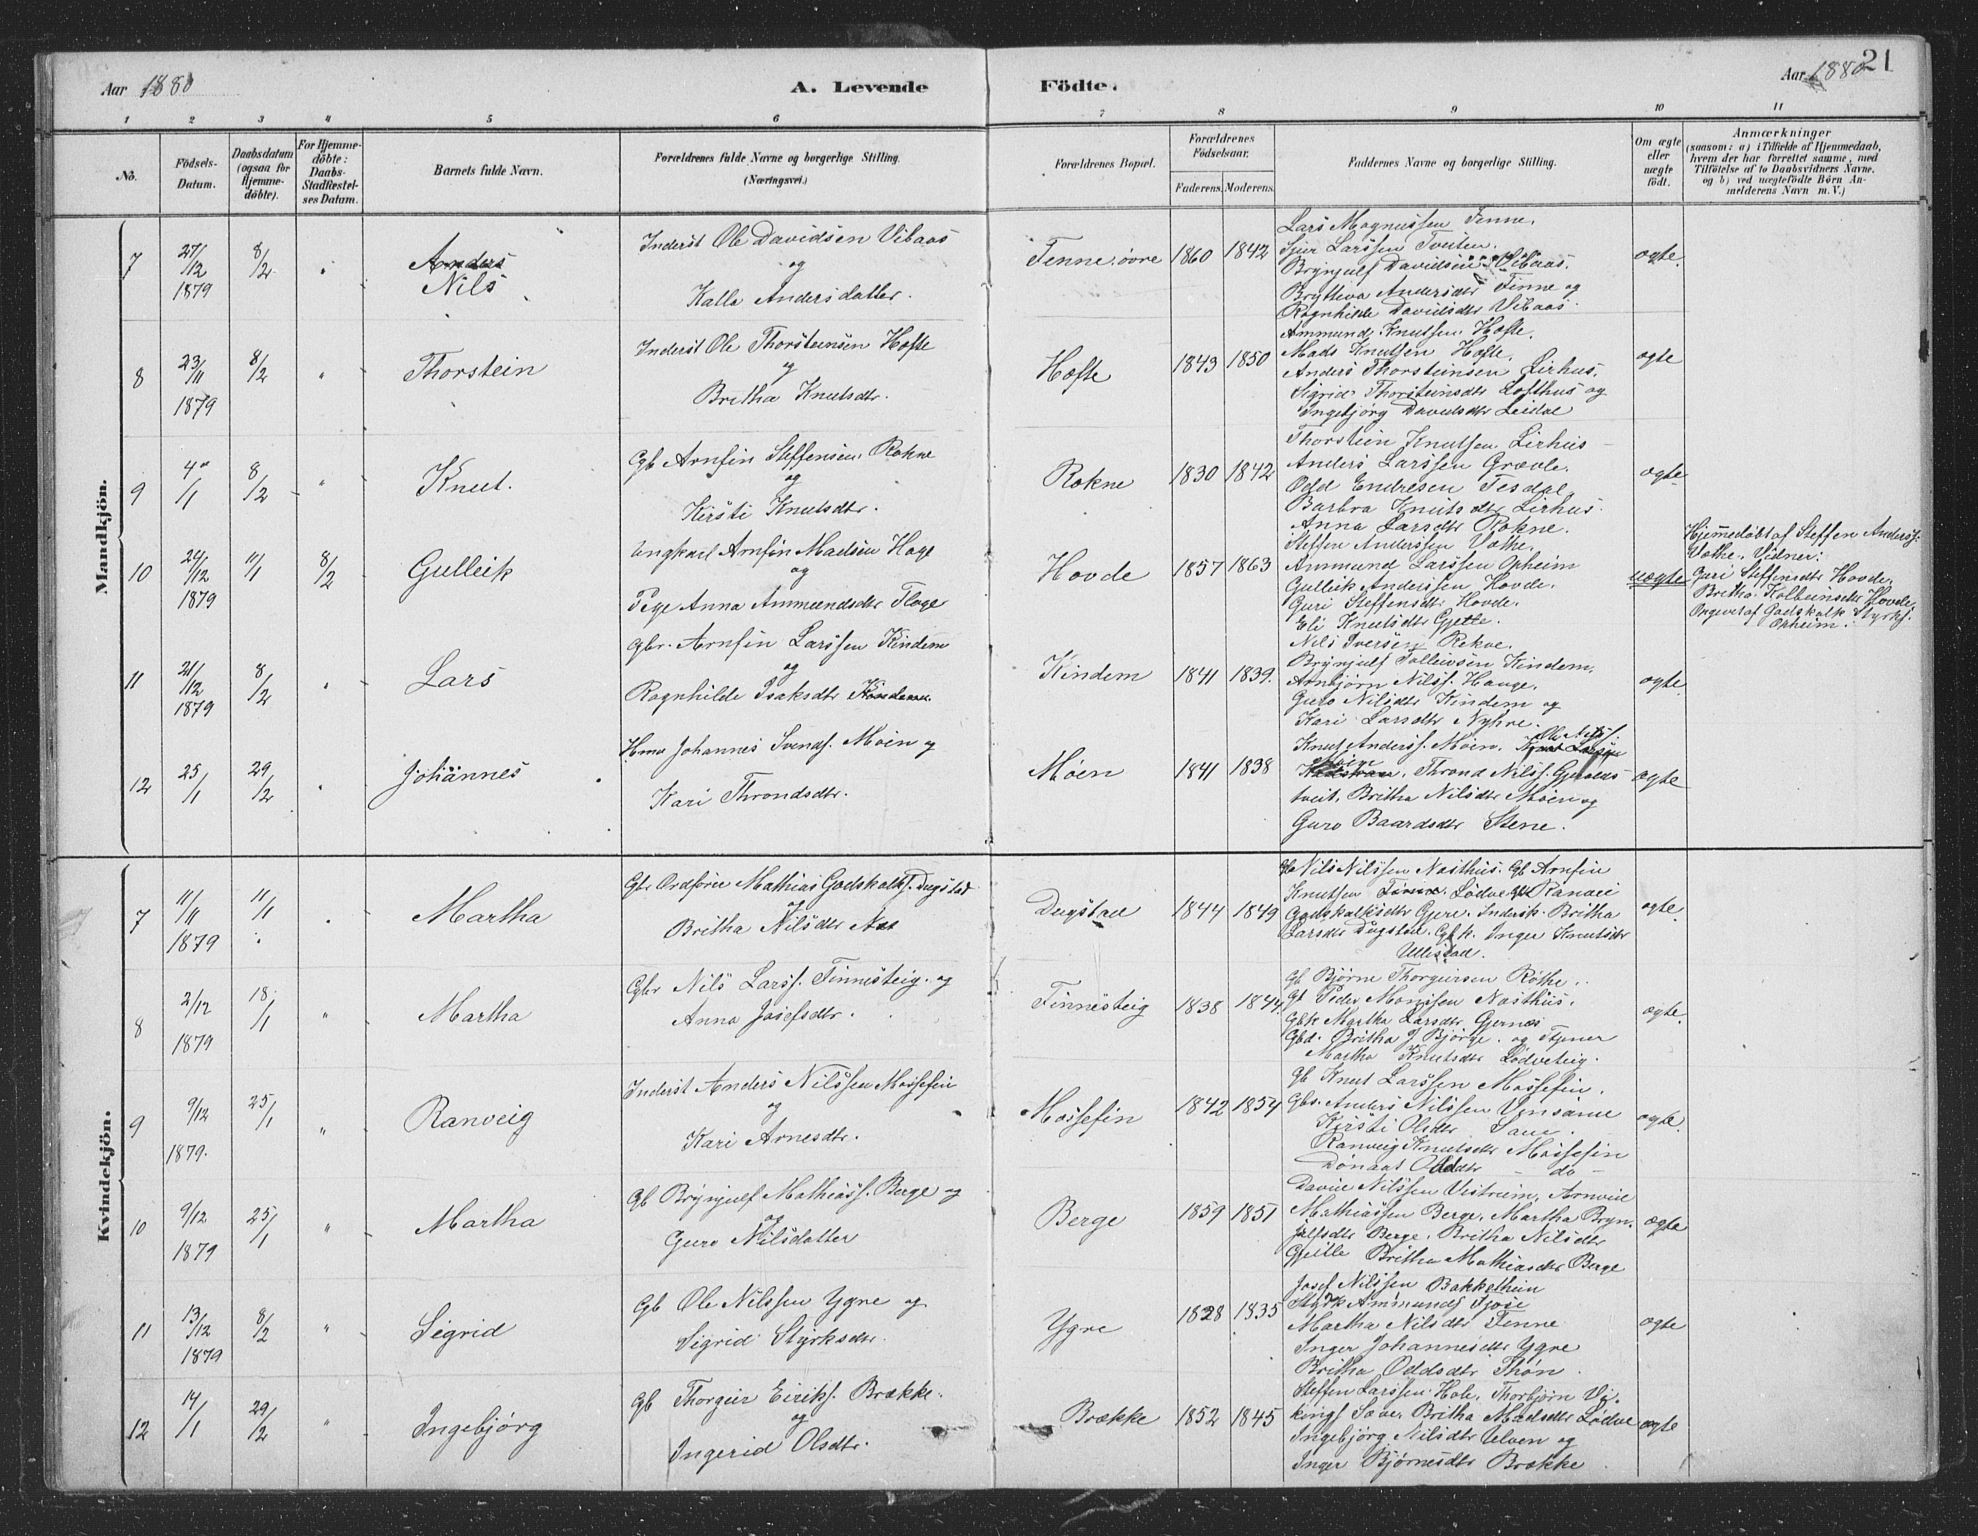 21
Aar 1880
A. Levende
Födte.
Aar 1880
1 2 3 4 5 6 7 8 9 10 11
No.
Födsels-
Datum.
Daabsdatum
(ogsaa for
Hjemme-
döbte).
For Hjemme-
döbte:
Daabs-
Stadfæstel-
ses Datum.
Barnets fulde Navn.
Forældrenes fulde Navne og borgerlige Stilling.
(Næringsvei.)
Forældrenes Bopæl.
Forældrenes
Födselsaar.
Faderens. Moderens.
Faddernes Navne og borgerlige Stilling.
Om ægte
eller
uægte
födt.
Anmærkninger
(saasom: a) i Tilfælde af Hjemmedaab,
hvem der har forrettet samme, med
Tilföielse af to Daabsvidners Navne,
og b) ved uægtefödte Börn An-
melderens Navn m. V.)
Mandkjön.
7
27/12 1879
8/2
"
Anders
Nils
Inderst Ole Davidsen Vibaas
og
Kalla Andersdatter.
Finne, øvre
1860 1842
Lars Magnussen Finne,
Sjur Larssen Tveiten.
Brynjulf Davidsen Vibaas.
Bryteva Andersdtr Finne og
Ragnhilde Davidsdtr Vibaas
ægte.
8
23/11 1879
8/2
"
Thorstein
Inderst Ole Thorsteinsen Hæfte
og
Britha Knutsdtr.
Hæfte
1843 1850
Ammund Knutsen Hæfte.
Mads Knutsen Hæfte.
Anders Thorsteinsen Lirhus,
Sigrid Thorsteinsdtr Lofthus og
Ingebjørg Davidsdtr Leidal
ægte
9
4/1
8/2
"
Knut.
Gb Arnfin Steffensen Rokne
og
Kirsti Knutsdtr.
Rokne
1830 1842
Thorstein Knutsen Lirhus
Anders Larssen Grøvle.
Odd Endresen Tesdal
Barbra Knutsdtr Lirhus.
Anna Larsdtr Rokne.
ægte
10
24/12 1879
11/1
8/2
Gulleik
Ungkarl Arnfin Madsen Hage
og
Pige Anna Ammundsdtr Flage
Hovde
1857 1863
Steffen Anderssen Vathe.
Ammund Larssen Opheim
Gulleik Anderssen Hovde.
Guri Steffensdtr Hovde.
Eli Knutsdtr Gjelle.
uægte
Hjemmedøbt af Steffen Anderss.
Vathe. Vidner:
Guri Steffensdtr Hovde,
Britha Kolbeinsdtr Hovde.
Opgivet af Gadskalk Styrks.
Opheim.
11
21/12 1879
8/2
"
Lars
Gbr. Arnfin Larssen Kindem
og
Ragnhilde Isaksdtr Kindem
Kindem
1841 1839.
Nils Iversen Rekve.
Brynjulf Tolleivsen Kindem.
Arnbjørn Nilss. Hauge.
Guro Nilsdtr Kindem og
Kari Larsdtr Nyhre.
ægte.
12
25/1
29/2
"
Johannes
Hmd Johannes Svends. Moen og
Kari Throndsdtr.
Moen
1841 1838
Ole Nilss.
Knut Anderss. Moen.
Moen
Thrond Nilss.
tveit, Britha Nilsdtr Moen og
Guro Baardsdtr Stene.
ægte
Kvindekjön.
7
11/11 1879
11/1
"
Martha
Gbr Ordfører Mathias Godskalks. Dugstad
og
Britha Nilsdtr
Dugstad
1844 1849
Gb Nils Nilssen Næsthus. Gb Arnfin
Knutsen Lødve
Godskalksdtr Gjere. Britha
Larsdtr Dugstad. Gbk. Inger Knutsdtr
Ullestad.
ægte
8
2/12 1879
18/1
"
Martha
Gbr Nils Larss. Finnesteig. og
Anna Josefsdtr.
Finnesteig
1838 1844.
Gb Bjørne Thorgeirsen Røthe.
Gb Peder Monssen Næsthus.
Gbk Martha Larsdtr Gjernes
Gbd. Britha J Bjørge. og Tjener
Martha Knutsdtr Lødveteig.
ægte.
9
9/12 1879.
25/1
"
Ranveig
Inderst Anders Nilssen Mossefin
og
Kari Arnesdtr.
Mossefin
1842 1854
Gb Knut Larssen Mossefin.
Gbs. Anders Nilssen Vinsand
Kirsti Olsdtr Saue.
Ranveig Knutsdtr Mossefin
Oddsdtr – do –
ægte.
10
9/12 1879
25/1
"
Martha
Gb Brynjulf Mathiass. Berge og
Guro Nilsdatter
Berge
1859 1851
David Nilssen Vestrem, Arnvid
Mathiassen Berge, Martha Bryn-
julfsdtr Berge, Britha Nilsdtr
Gjelle Britha Mathiasdtr Berge
ægte
11
13/12 1879
8/2
"
Sigrid
Gb Ole Nilssen Ygre og
Sigrid Styrksdtr.
Ygre
1828 1835
Josef Nilssen Bakkethun
Styrk Ammunds Fjose
Martha Nilsdtr Finne
Inger Johannesdtr Ygre
Britha Oddsdtr Thøn
ægte
12
14/1
29/2
"
Ingebjørg
Gb Thorgeir Eiriks. Brække.
og
Ingerid Olsdtr.
Brække
1852 1845
Steffen Larssen Hole, Thorbjørn Vi-
kings Saue, Britha Madsdtr Lødve
Ingebjørg Nilsdtr Ulven og
Inger Bjørnesdtr Brække
ægte